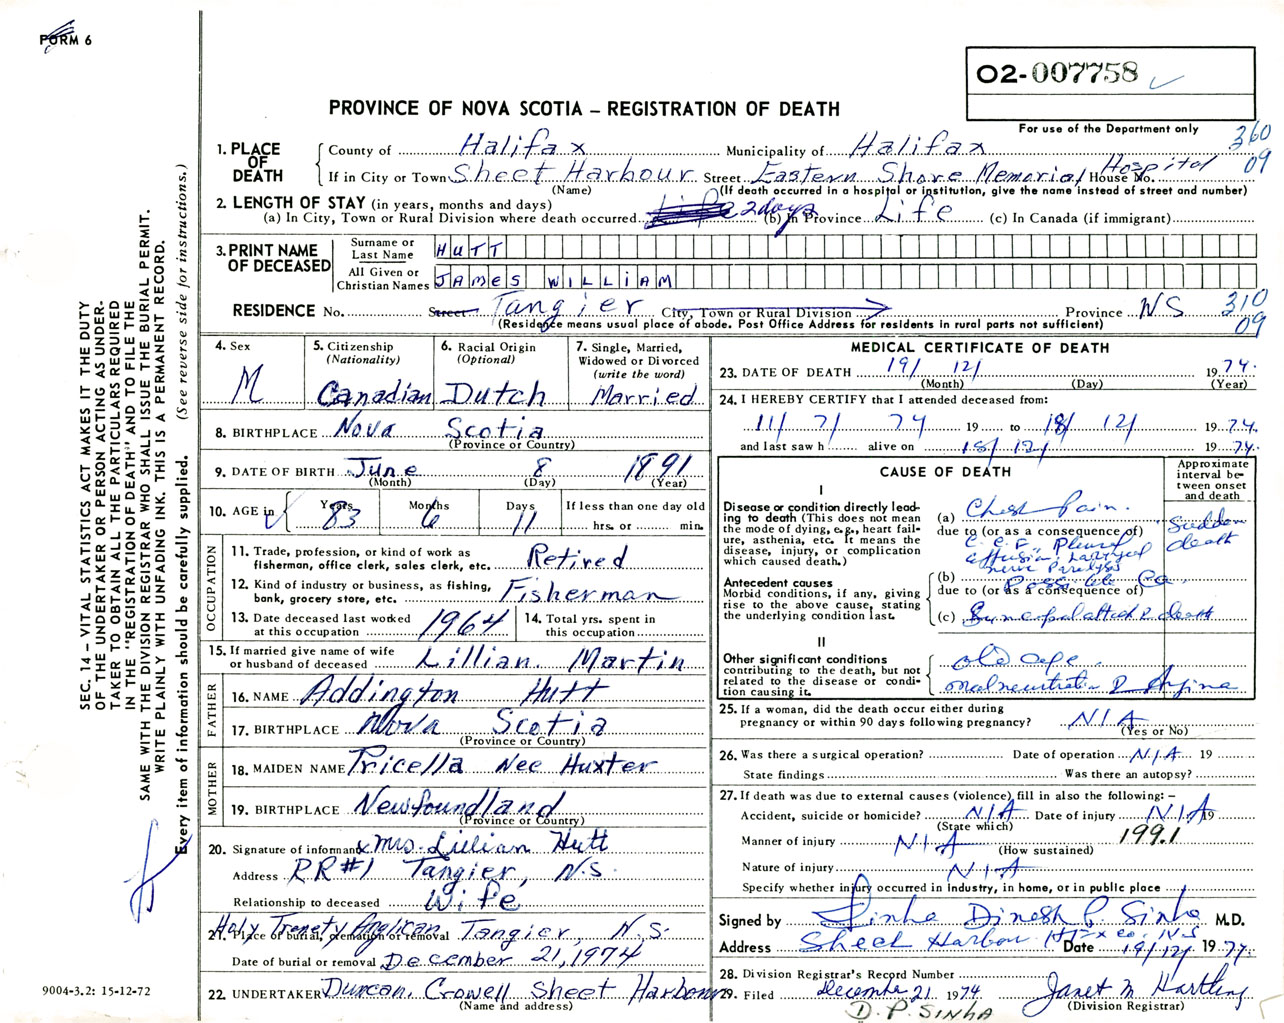 FORM 6
02-007758
PROVINCE OF NOVA SCOTIA – REGISTRATION OF DEATH
For use of the Department only
360
09
1. PLACE OF DEATH
County of Halifax Municipality of Halifax
If in City or Town Sheet Harbour Street Eastern Shore Memorial Hospital House No.
(Name) (If death occurred in a hospital or institution, give the name instead of street and number)
2. LENGTH OF STAY (in years, months and days)
(a) In City, Town or Rural Division where death occurred Life 2 days (b) In Province Life (c) In Canada (if immigrant)
3. PRINT NAME OF DECEASED
Surname or Last Name HUTT
All Given or Christian Names JAMES WILLIAM
RESIDENCE No. Street Tangier City, Town or Rural Division Province NS
310
09
(Residence means usual place of abode. Post Office Address for residents in rural parts not sufficient)
4. Sex M
5. Citizenship (Nationality) Canadian
6. Racial Origin (Optional) Dutch
7. Single, Married, Widowed or Divorced (write the word) Married
8. BIRTHPLACE Nova Scotia
(Province or Country)
9. DATE OF BIRTH June 8 1891
(Month) (Day) (Year)
10. AGE in Years 83 Months 6 Days 11 If less than one day old
hrs. or min.
OCCUPATION
11. Trade, profession, or kind of work as fisherman, office clerk, sales clerk, etc. Retired
12. Kind of industry or business, as fishing, bank, grocery store, etc. Fisherman
13. Date deceased last worked at this occupation 1964
14. Total yrs. spent in this occupation
15. If married give name of wife or husband of deceased Lillian Martin
FATHER
16. NAME Addington Hutt
17. BIRTHPLACE Nova Scotia
(Province or Country)
MOTHER
18. MAIDEN NAME Pricella Nee Huxter
19. BIRTHPLACE Newfoundland
(Province or Country)
20. Signature of informant x Mrs. Lillian Hutt
Address RR#1 Tangier, N.S.
Relationship to deceased Wife
21. Place of burial, cremation or removal Holy Trenety Anglican Tangier, N.S.
Date of burial or removal December 21, 1974
22. UNDERTAKER Duncan Crowell Sheet Harbour
(Name and address)
MEDICAL CERTIFICATE OF DEATH
23. DATE OF DEATH 19/ 12/ 1974.
(Month) (Day) (Year)
24. I HEREBY CERTIFY that I attended deceased from:
11/ 7/ 74 19 to 18/ 12/ 1974.
and last saw h alive on 18/12/ 1974.
CAUSE OF DEATH
Approximate interval between onset and death
I
Disease or condition directly leading to death (This does not mean the mode of dying, e.g., heart failure, asthenia, etc. It means the disease, injury, or complication which caused death.)
(a) Chest Pain. Sudden death
due to (or as a consequence of)
C.C.F. Pleural effusion Laryngeal nerve Paralysis
Antecedent causes
Morbid conditions, if any, giving rise to the above cause, stating the underlying condition last.
(b) Possible Ca
due to (or as a consequence of)
(c) death
II
Other significant conditions contributing to the death, but not related to the disease or condition causing it.
old age.
Angina
25. If a woman, did the death occur either during pregnancy or within 90 days following pregnancy? N/A
(Yes or No)
26. Was there a surgical operation? Date of operation N/A 19
State findings Was there an autopsy?
27. If death was due to external causes (violence) fill in also the following: –
Accident, suicide or homicide? N/A Date of injury N/A 19
(State which)
Manner of injury N/A 1991
(How sustained)
Nature of injury N/A
Specify whether injury occurred in industry, in home, or in public place
Signed by Sinha Dinesh P. Sinha M.D.
Address Sheet Harbour Hfx co. N.S Date 19/12/ 1974.
28. Division Registrar's Record Number
29. Filed December 21 1974 Janet M Hartling
(Division Registrar)
D. P. SINHA
SEC. 14 – VITAL STATISTICS ACT MAKES IT THE DUTY
OF THE UNDERTAKER OR PERSON ACTING AS UNDER-
TAKER TO OBTAIN ALL THE PARTICULARS REQUIRED
IN THE "REGISTRATION OF DEATH" AND TO FILE THE
SAME WITH THE DIVISION REGISTRAR WHO SHALL ISSUE THE BURIAL PERMIT.
WRITE PLAINLY WITH UNFADING INK. THIS IS A PERMANENT RECORD.
Every item of information should be carefully supplied. (See reverse side for instructions.)
9004-3.2: 15-12-72